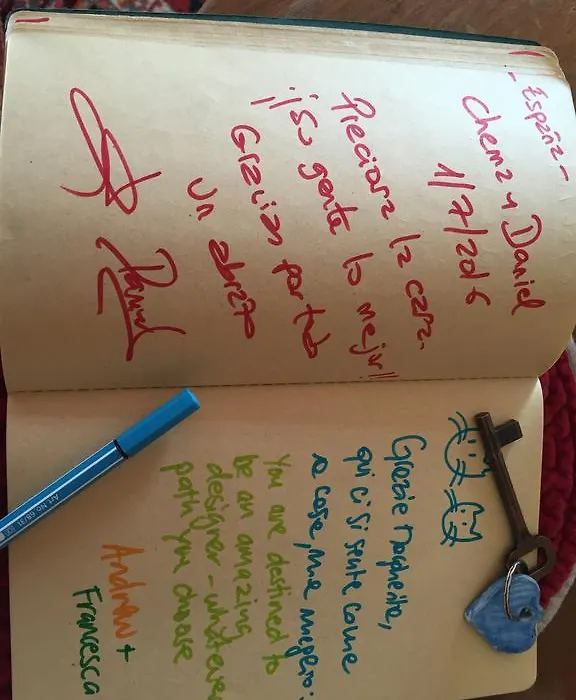 - España -
Chema y Daniel
1/7/2016
Preciosa la casa.
¡¡Su gente lo mejor!!
Gracias por todo
Un abrazo
Daniel
Grazie Margherita,
qui ci si sente come
a casa, ma meglio:
You are destined to
be an amazing
designer - whatever
path you choose
Andrew +
Francesca
Art.No 68/31